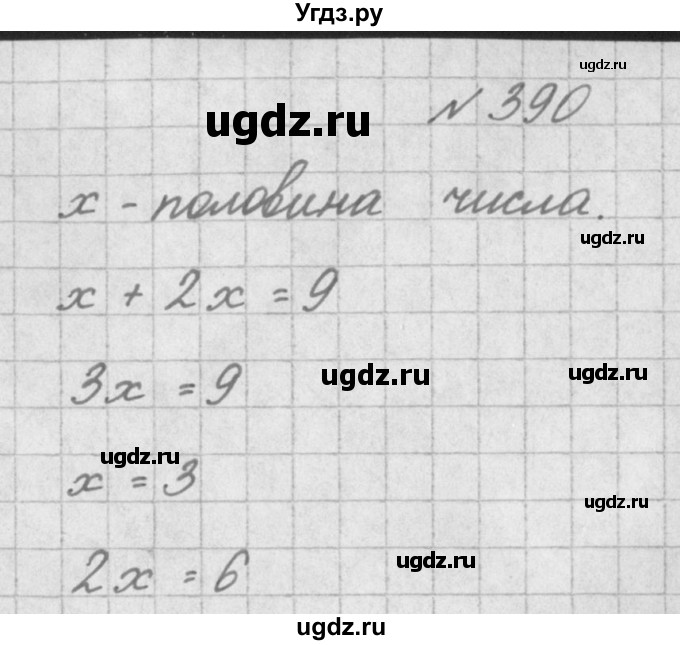 Угдз.ру
ugdz.ru
ugdz.ru
№ 390
x - половина числа.
ugdz.ru
x + 2x = 9
3x = 9
ugdz.ru
ugdz.ru
ugdz.ru
x = 3
ugdz.ru
2x = 6
ugdz.ru
ugdz.ru